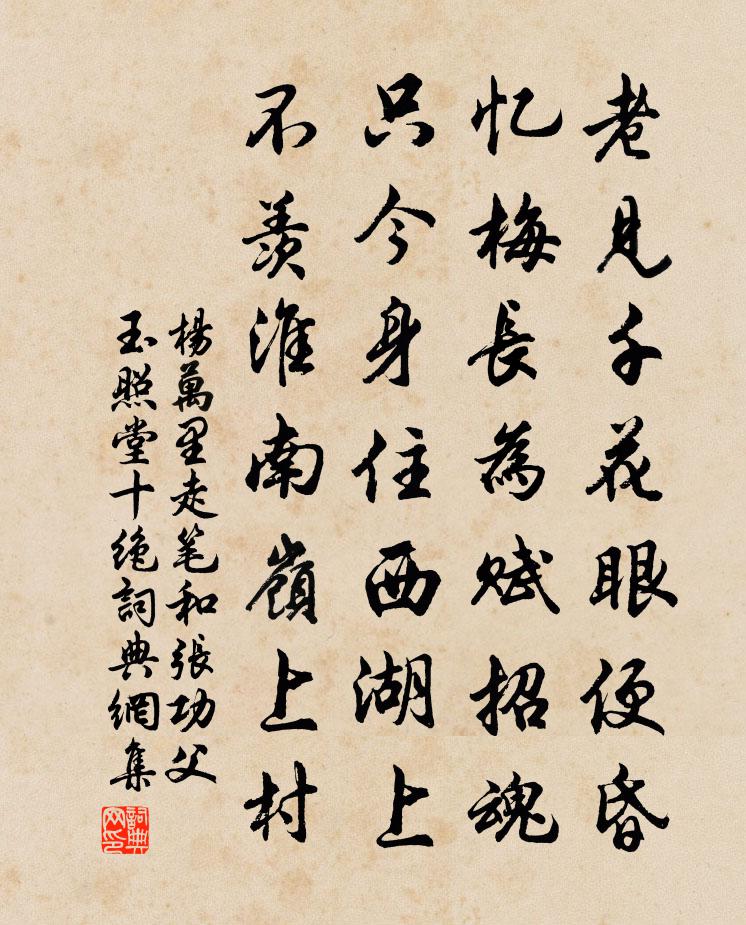 老見千花眼便昏
忆梅長為赋招魂
只今身住西湖上
不羨淮南嶺上村
楊萬里走笔和張功父
玉照堂十绝詞典網集
詞典网印